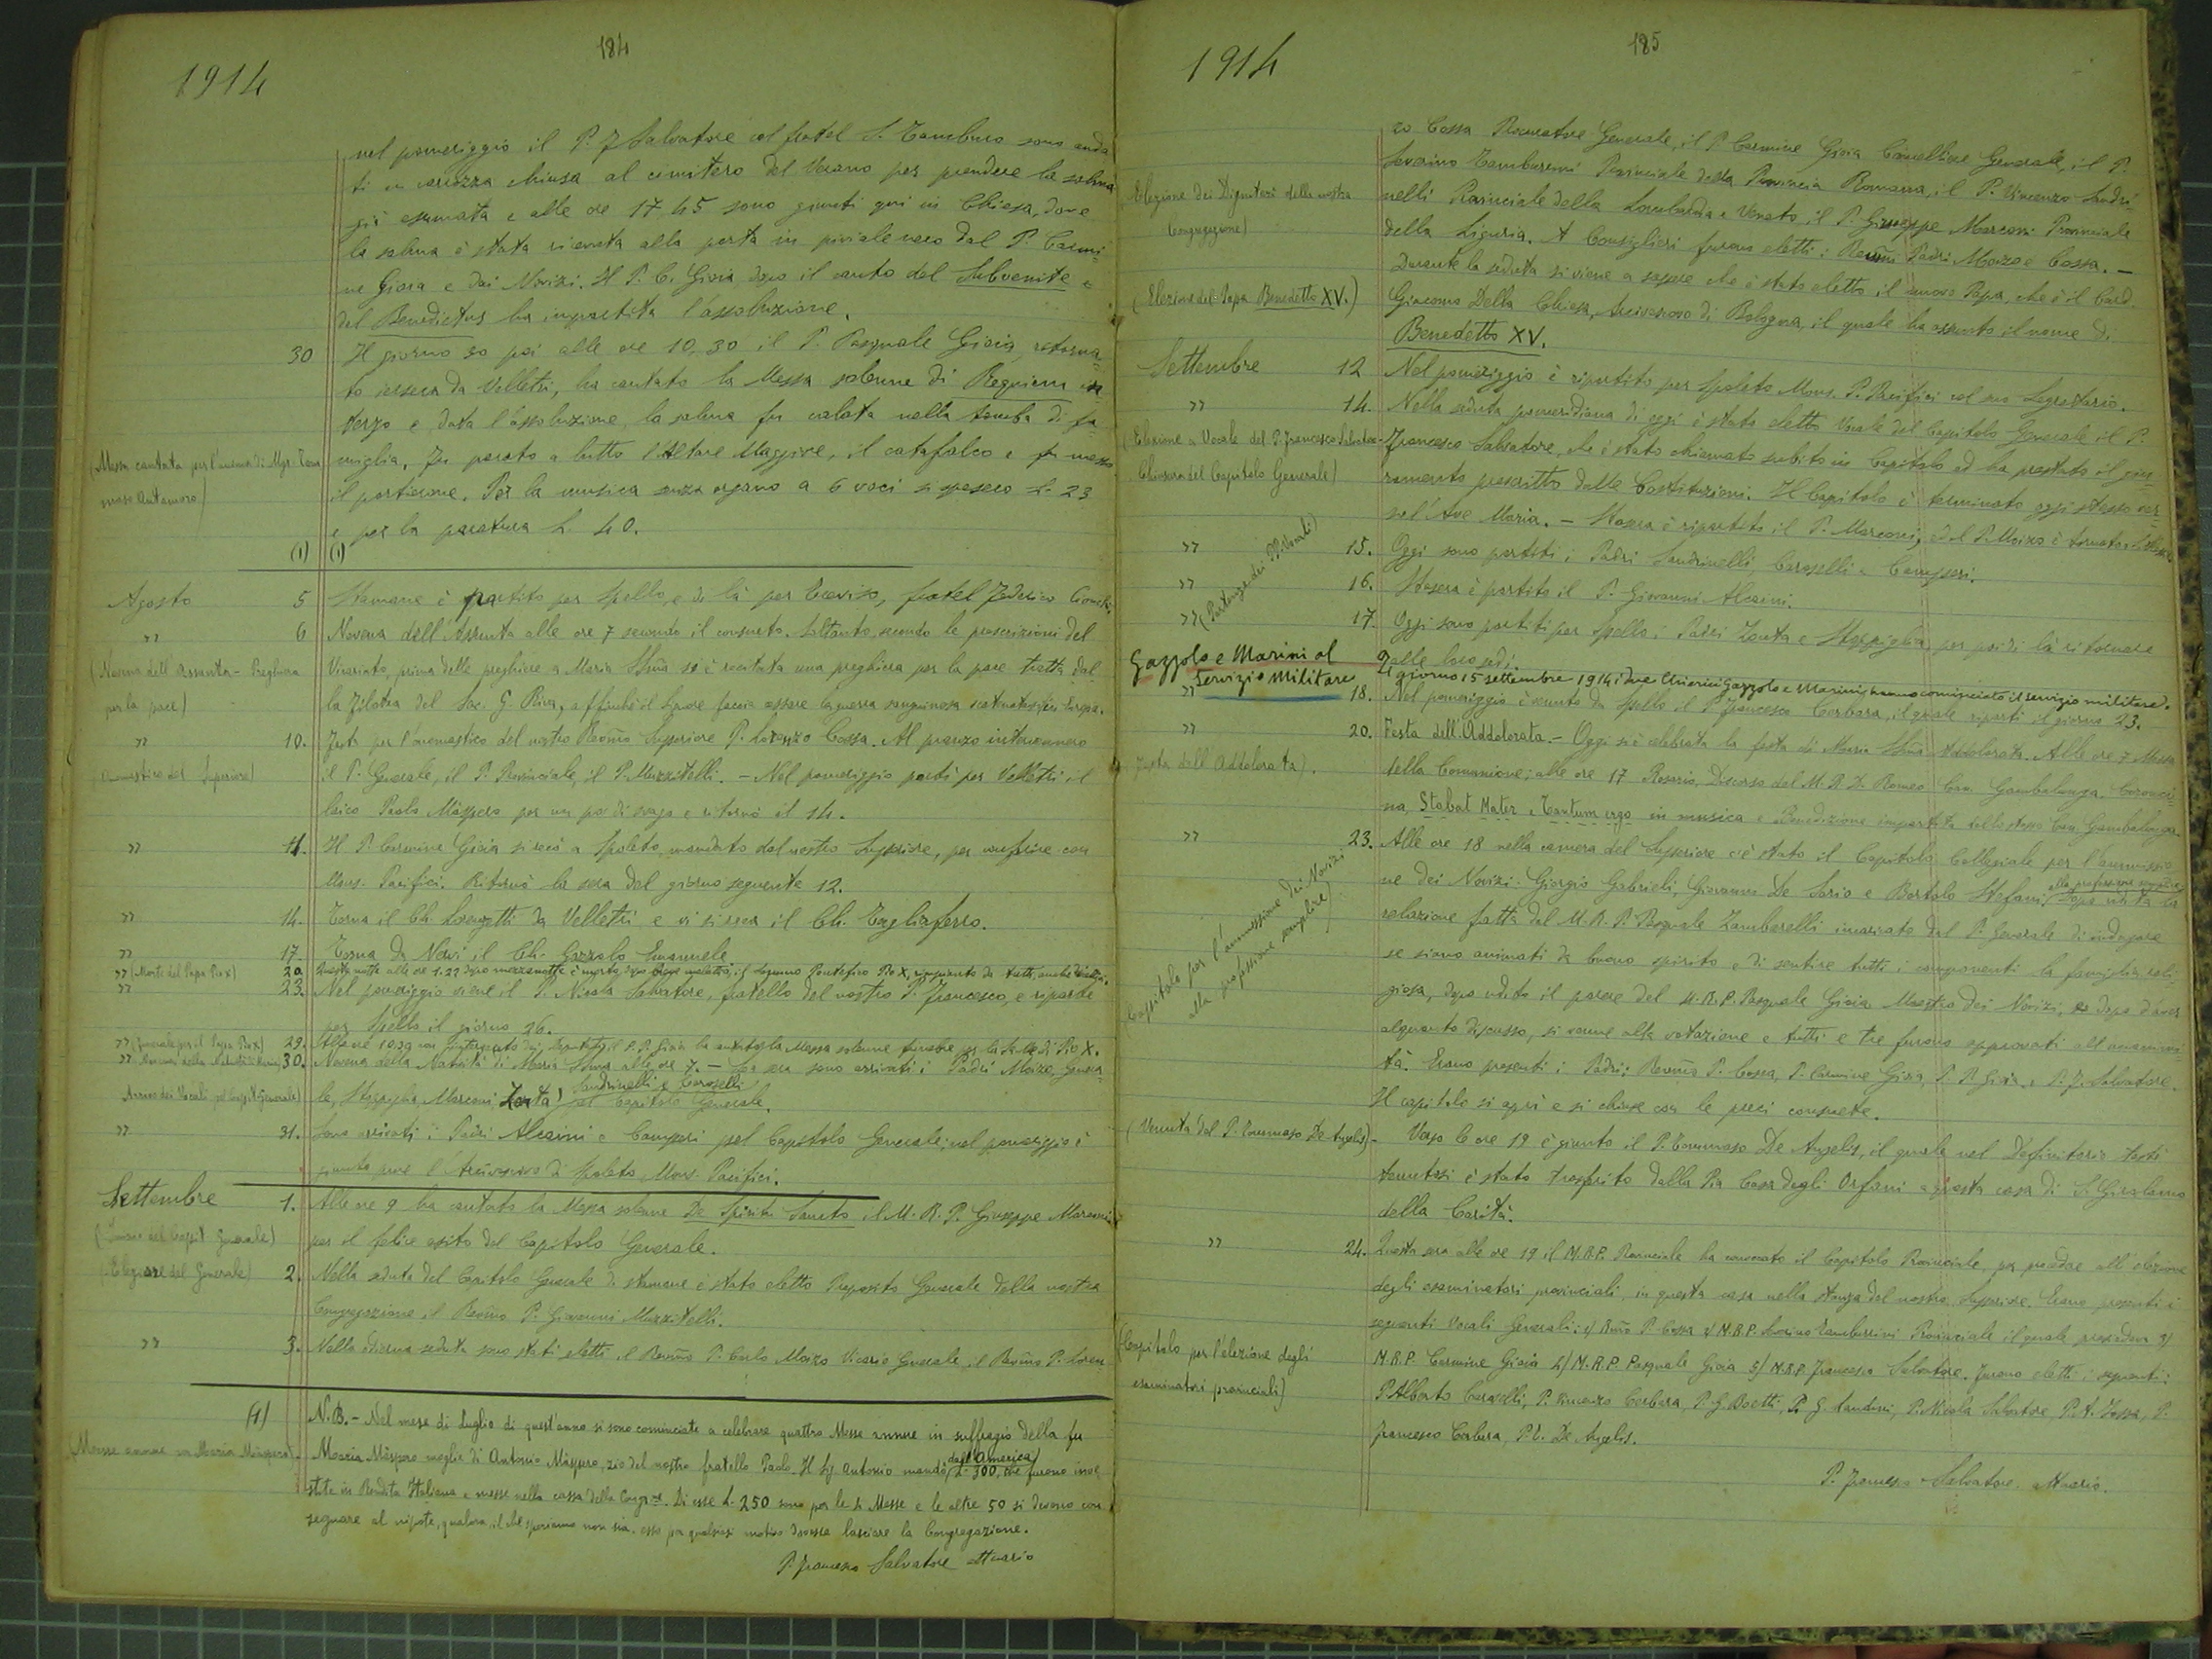 184
1914
nel pomeriggio il P. F. Salvatore col fratel S. Tamburo sono anda
ti in carrozza chiusa al cimitero del Verano per prendere la salma
già esumata e alle ore 17,45 sono giunti qui in Chiesa, dove
la salma è stata ricevuta alla porta in piviale nero dal P. Carmi-
ne Gioia e dai Novizi. Il P. C. Gioia dopo il canto del Subvenite e
del Benedictus ha impartita l'assoluzione.
30 Il giorno 30 poi alle ore 10,30 il P. Pasquale Gioia, ritorna-
to iersera da Velletri, ha cantato la Messa solenne di Requiem in
terzo e data l'assoluzione, la salma fu calata nella tomba di fa-
(Messa cantata per l'anima di Mgr. Tom
maso Antamoro)
miglia. Fu parato a lutto l'Altare Maggiore, il catafalco e fu messo
il portierone. Per la musica senza organo a 6 voci si spesero L. 23
e per la paratura L. 40.
(1) (1)
Agosto 5 Stamane è partito per Spello, e di là per Treviso, fratel Federico Cionchi.
" 6 Novena dell'Assunta alle ore 7 secondo il consueto. Soltanto, secondo le prescrizioni del
(Novena dell'Assunta - Preghiera
per la pace)
Vicariato, prima delle preghiere a Maria SSma si è recitata una preghiera per la pace tratta dal
la Filotea del Sac. G. Riva, affinchè il Signore faccia cessare la guerra sanguinosa scatenatasi in Europa.
" 10. Festa per l'onomastico del nostro Revmo Superiore P. Lorenzo Cossa. Al pranzo intervennero
(Onomastico del Superiore)
il P. Generale, il P. Provinciale, il P. Muzzitelli. - Nel pomeriggio partì per Velletri il
laico Paolo Màspero per un po' di svago e ritornò il 14.
" 11. Il P. Carmine Gioia si recò a Spoleto, mandato dal nostro Superiore, per conferire con
Mons. Pacifici. Ritornò la sera del giorno seguente 12.
" 14. Torna il Ch. Lorenzetti da Velletri e vi si reca il Ch. Tagliaferro.
" 17. Torna da Nervi il Ch. Gazzolo Emanuele
" (Morte del Papa Pio X) 20. Questa notte alle ore 1.22 dopo mezzanotte è morto, dopo breve malattia, il Sommo Pontefice Pio X, rimpianto da tutti, anche
" 23. Nel pomeriggio viene il P. Nicola Salvatore, fratello del nostro P. Francesco, e riparte
per Spello il giorno 26.
" (Funerale per il Papa Pio X) 29. Alle ore 10,30 con il P. P. Gioia ha cantato la Messa solenne funebre per la di Pio X.
" (Novena della Natività di Maria) 30. Novena della Natività di Maria SSma alle ore 7. - La sera sono arrivati i Padri Moizo, Genera-
Arrivo dei Vocali pel Capit. Generale)
le, Stoppiglia, Marconi, Zonta, Sandrinelli e Caroselli pel Capitolo Generale.
" 31. Sono arrivati i Padri Alcaini e Camperi pel Capitolo Generale; nel pomeriggio è
giunto pure l'Arcivescovo di Spoleto Mons. Pacifici.
Settembre 1. Alle ore 9 ha cantato la Messa solenne De Spiritu Sancto il M. R. P. Giuseppe Marconi
( del Capit. Generale)
per il felice esito del Capitolo Generale.
(Elezione del Generale) 2. Nella seduta del Capitolo Generale di stamane è stato eletto Preposito Generale della nostra
Congregazione il Revmo P. Giovanni Muzzitelli.
" 3. Nella odierna seduta sono stati eletti il Revmo P. Carlo Moizo Vicario Generale, il Revmo P. Loren
(1) N.B. - Nel mese di Luglio di quest'anno si sono cominciate a celebrare quattro Messe annue in suffragio della fu
(Messe annue per Maria Màspero).
Maria Màspero moglie di Antonio Màspero, zio del nostro fratello Paolo. Il Sig. Antonio mandò dall'America L. 300, che furono inve
stite in Rendita Italiana e messe nella cassa della Congne. Di esse L. 250 sono per le 4 Messe e le altre 50 si devono con
segnare al nipote, qualora, il che speriamo non sia, esso per qualsiasi motivo dovesse lasciare la Congregazione.
P. Francesco Salvatore Attuario
185
1914
zo Cossa Procuratore Generale, il P. Carmine Gioia Cancelliere Generale, il P.
Severino Tamburrini Provinciale della Provincia Romana, il P. Vincenzo Sandri-
(Elezione dei Dignitari della nostra
Congregazione)
nelli Provinciale della Lombardia e Veneto, il P. Giuseppe Marconi Provinciale
della Liguria. A Consiglieri furono eletti i Revmi Padri Moizo e Cossa. -
Durante la seduta si viene a sapere che è stato eletto il nuovo Papa, che è il Card.
(Elezione del Papa Benedetto XV.)
Giacomo Della Chiesa, Arcivescovo di Bologna, il quale ha assunto il nome di
Benedetto XV.
Settembre 12 Nel pomeriggio è ripartito per Spoleto Mons. P. Pacifici col suo Segretario.
" 14. Nella seduta pomeridiana di oggi è stato eletto Vocale del Capitolo Generale il P.
(Elezione a Vocale del P. Francesco Salvatore -
Chiusura del Capitolo Generale)
Francesco Salvatore, che è stato chiamato subito in Capitolo ed ha prestato il giu
ramento prescritto dalle Costituzioni. Il Capitolo è terminato oggi stesso ver-
so l'Ave Maria. - Stasera è ripartito il P. Marconi, ed il P. Moizo è tornato
" 15. Oggi sono partiti i Padri Sandrinelli, Caroselli e Camperi.
(Partenza dei PP. Vocali)
" 16. Stasera è partito il P. Giovanni Alcaini.
" 17. Oggi sono partiti per Spello i Padri Zonta e Stoppiglia per poi di là ritornare
alle loro sedi.
Gazzolo e Marini al
Servizio Militare
Il giorno 15 settembre 1914 i due Chierici Gazzolo e Marini, hanno cominciato il servizio militare.
" 18. Nel pomeriggio è venuto da Spello il P. Francesco Cerbara, il quale ripartì il giorno 23.
" 20. Festa dell'Addolorata. - Oggi si è celebrata la festa di Maria SSma Addolorata. Alle ore 7 Messa
Festa dell'Addolorata).
della Comunione; alle ore 17 Rosario, Discorso del M. R. D. Romeo Can. Gambalunga, Coronci-
na, Stabat Mater e Tantum ergo in musica e Benedizione impartita dallo stesso Can. Gambalunga.
" 23. Alle ore 18 nella camera del Superiore c'è stato il Capitolo Collegiale per l'ammissio
(Capitolo per l'ammissione dei Novizi
alla professione semplice)
ne dei Novizi: Giorgio Gabrieli, Giovanni De Sario e Bortolo Stefani alla professione semplice. Dopo udita la
relazione fatta dal M. R. P. Pasquale Zambarelli incaricato dal P. Generale di indagare
se siano animati da buono spirito e di sentire tutti i componenti la famiglia reli-
giosa, dopo udito il parere del M. R. P. Pasquale Gioia Maestro dei Novizi, e dopo d'aver
alquanto discusso, si venne alla votazione e tutti e tre furono approvati all'unanimi
tà. Erano presenti i Padri: Revmo P. Cossa, P. Carmine Gioia, P. P. Gioia e P. F. Salvatore.
Il capitolo si aprì e si chiuse con le preci consuete.
(Venuta del P. Tommaso De Angelis) - Verso le ore 19 è giunto il P. Tommaso De Angelis, il quale nel Definitorio testè
tenutosi è stato trasferito dalla Pia Casa degli Orfani a questa casa di S. Girolamo
della Carità.
" 24. Questa sera alle ore 19 il M.R.P. Provinciale ha convocato il Capitolo Provinciale, per procedere all'elezione
degli esaminatori provinciali, in questa casa nella stanza del nostro Superiore. Erano presenti i
seguenti Vocali Generali: 1/ Revmo P. Cossa 2/ M.R.P. Severino Tamburrini Provinciale il quale presiedeva 3/
(Capitolo per l'elezione degli
esaminatori provinciali)
M.R.P. Carmine Gioia 4/ M.R.P. Pasquale Gioia 5/ M.R.P. Francesco Salvatore. Furono eletti i seguenti:
P. Alberto Caroselli, P. Vincenzo Cerbara, P. G. Boetti, P. G. Landini, P. Nicola Salvatore, P. A. Zossa, P.
Francesco Cerbara, P. T. De Angelis.
P. Francesco Salvatore Attuario.